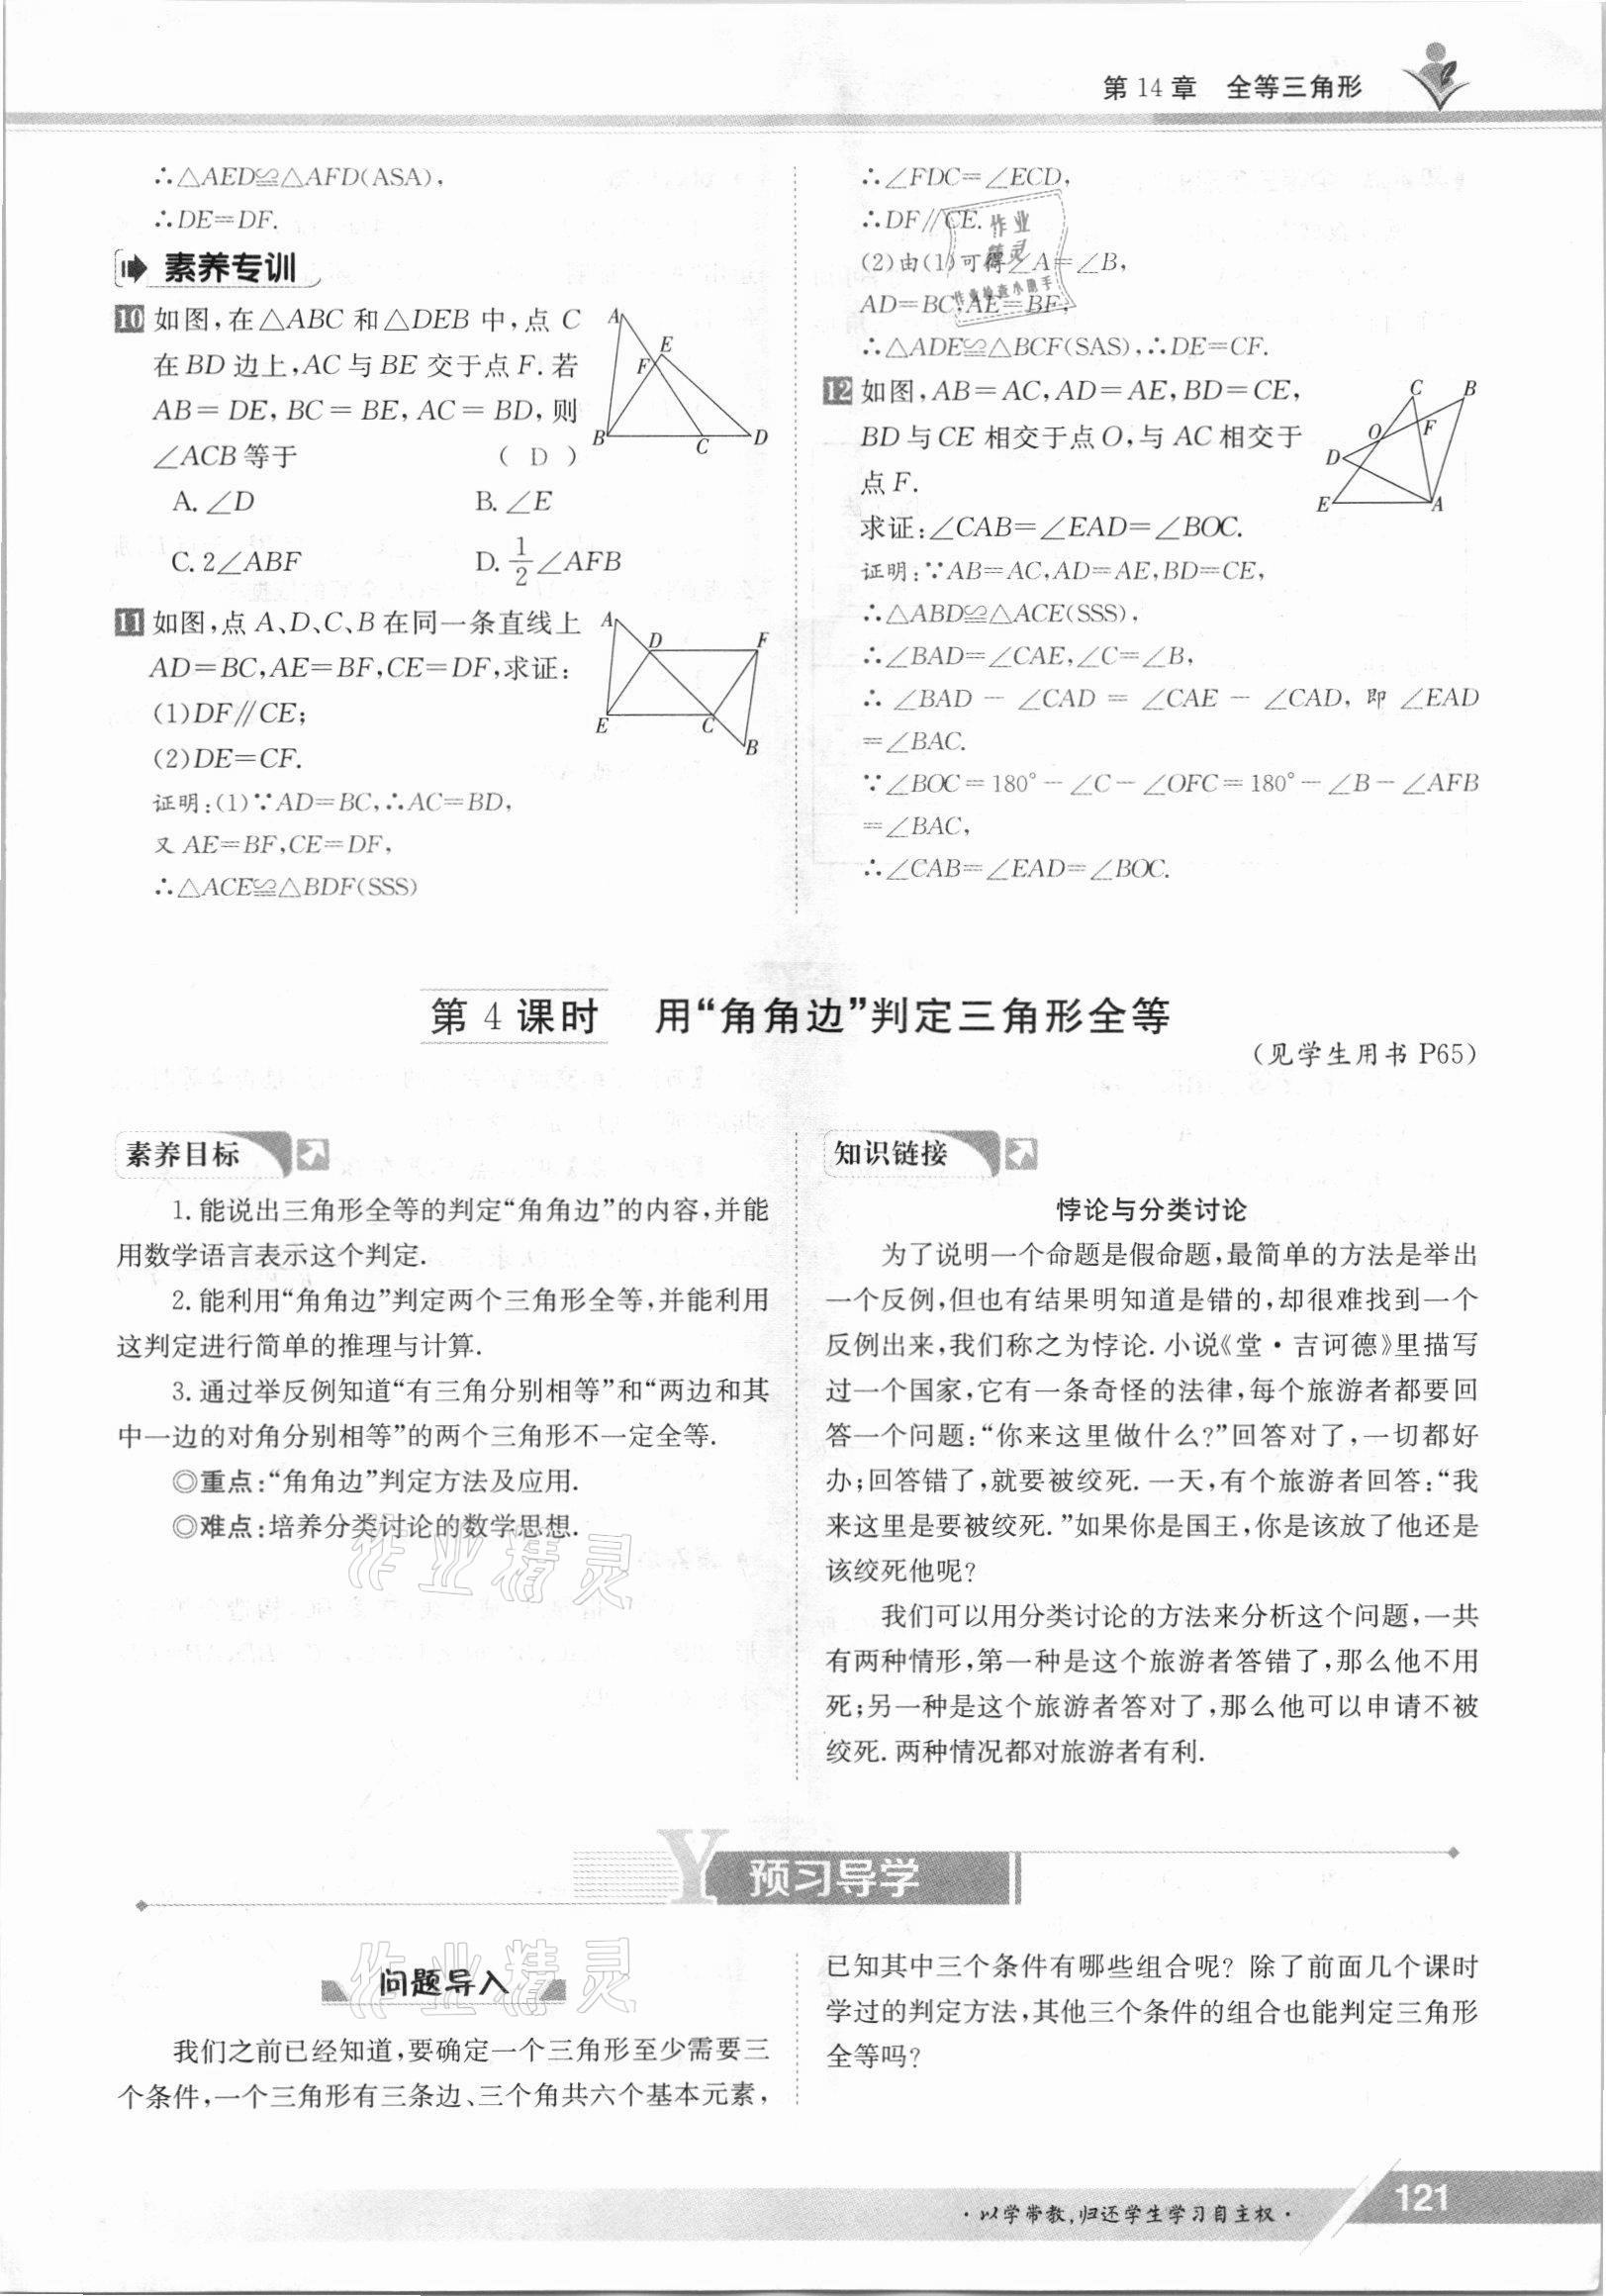 第 14 章 全等三角形
∴△AED≌△AFD(ASA),
∴DE=DF.
素养专训
10 如图,在△ABC 和△DEB 中,点 C
在 BD 边上,AC 与 BE 交于点 F. 若
AB=DE, BC=BE, AC=BD, 则
∠ACB 等于 ( D )
A. ∠D B. ∠E
C. 2∠ABF D. 1/2∠AFB
A
E
F
B
C
D
11 如图,点 A、D、C、B 在同一条直线上
AD=BC,AE=BF,CE=DF,求证:
(1)DF∥CE;
(2)DE=CF.
A
D
F
E
C
B
证明:(1)∵AD=BC,∴AC=BD,
又 AE=BF,CE=DF,
∴△ACE≌△BDF(SSS)
∴∠FDC=∠ECD,
∴DF∥CE.
(2)由(1)可得∠A=∠B,
AD=BC,AE=BF,
∴△ADE≌△BCF(SAS),∴DE=CF.
作业
精灵
作业检查小助手
12 如图,AB=AC,AD=AE,BD=CE,
BD 与 CE 相交于点 O,与 AC 相交于
点 F.
求证:∠CAB=∠EAD=∠BOC.
C
B
O
F
D
E
A
证明:∵AB=AC,AD=AE,BD=CE,
∴△ABD≌△ACE(SSS),
∴∠BAD=∠CAE,∠C=∠B,
∴∠BAD-∠CAD=∠CAE-∠CAD, 即∠EAD
=∠BAC.
∵∠BOC=180°-∠C-∠OFC=180°-∠B-∠AFB
=∠BAC,
∴∠CAB=∠EAD=∠BOC.
第 4 课时 用“角角边”判定三角形全等
(见学生用书 P65)
素养目标
1. 能说出三角形全等的判定“角角边”的内容,并能
用数学语言表示这个判定.
2. 能利用“角角边”判定两个三角形全等,并能利用
这判定进行简单的推理与计算.
3. 通过举反例知道“有三角分别相等”和“两边和其
中一边的对角分别相等”的两个三角形不一定全等.
◎重点:“角角边”判定方法及应用.
◎难点:培养分类讨论的数学思想.
作业精灵
知识链接
悖论与分类讨论
为了说明一个命题是假命题,最简单的方法是举出
一个反例,但也有结果明知道是错的,却很难找到一个
反例出来,我们称之为悖论. 小说《堂·吉诃德》里描写
过一个国家,它有一条奇怪的法律,每个旅游者都要回
答一个问题:“你来这里做什么?”回答对了,一切都好
办;回答错了,就要被绞死. 一天,有个旅游者回答:“我
来这里是要被绞死. ”如果你是国王,你是该放了他还是
该绞死他呢?
我们可以用分类讨论的方法来分析这个问题,一共
有两种情形,第一种是这个旅游者答错了,那么他不用
死;另一种是这个旅游者答对了,那么他可以申请不被
绞死. 两种情况都对旅游者有利.
Y 预习导学
问题导入
作业精灵
我们之前已经知道,要确定一个三角形至少需要三
个条件,一个三角形有三条边、三个角共六个基本元素,
已知其中三个条件有哪些组合呢? 除了前面几个课时
学过的判定方法,其他三个条件的组合也能判定三角形
全等吗?
·以学带教,归还学生学习自主权·
121